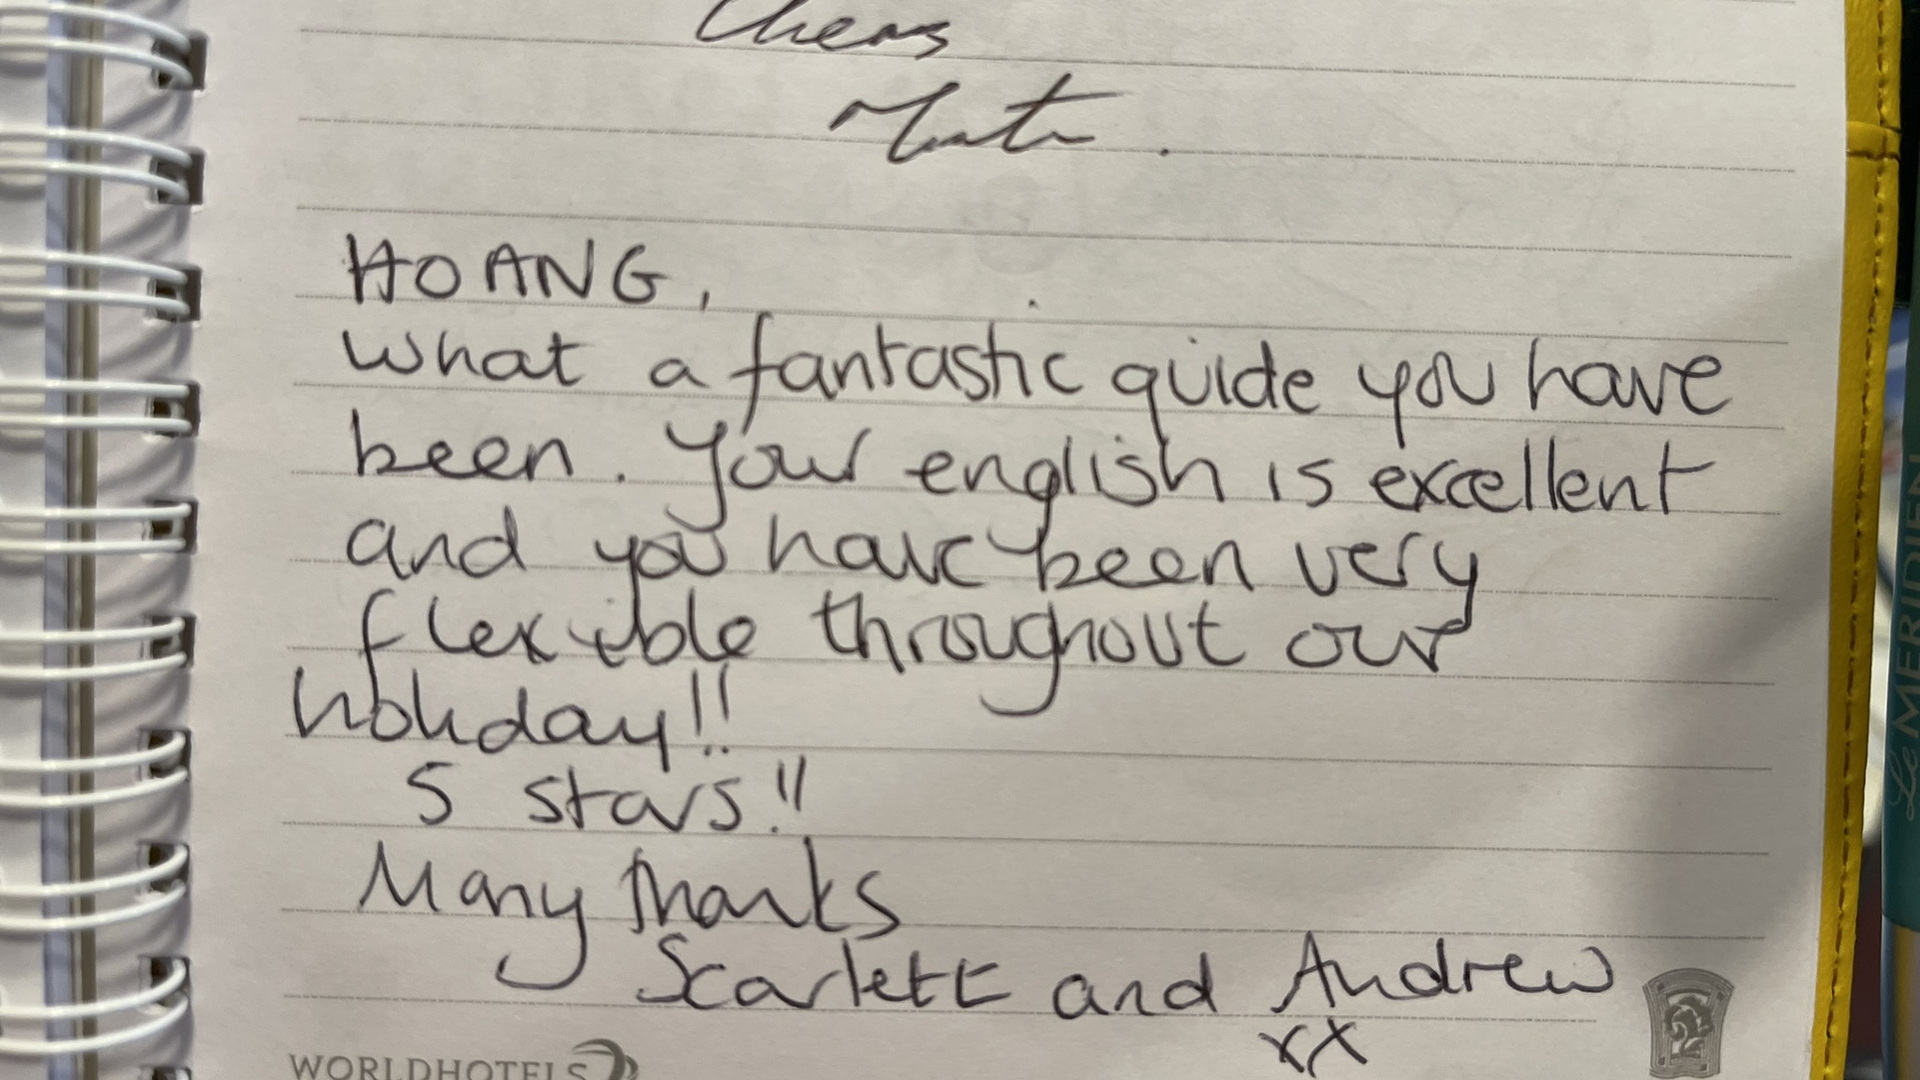 Cheers
HOANG,
What a fantastic guide you have
been. Your english is excellent
and you have been very
flexible throughout our
holiday!!
5 stars!!
Many thanks
Scarlett and Andrew
xx
WORLDHOTELS
Le MERIDIEN